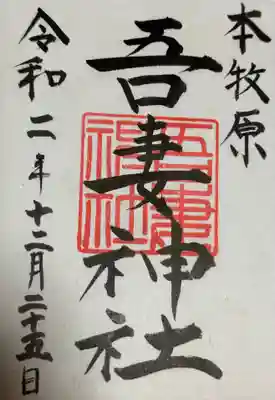 本牧原
吾妻神社
吾妻神社
令和二年十二月二十五日